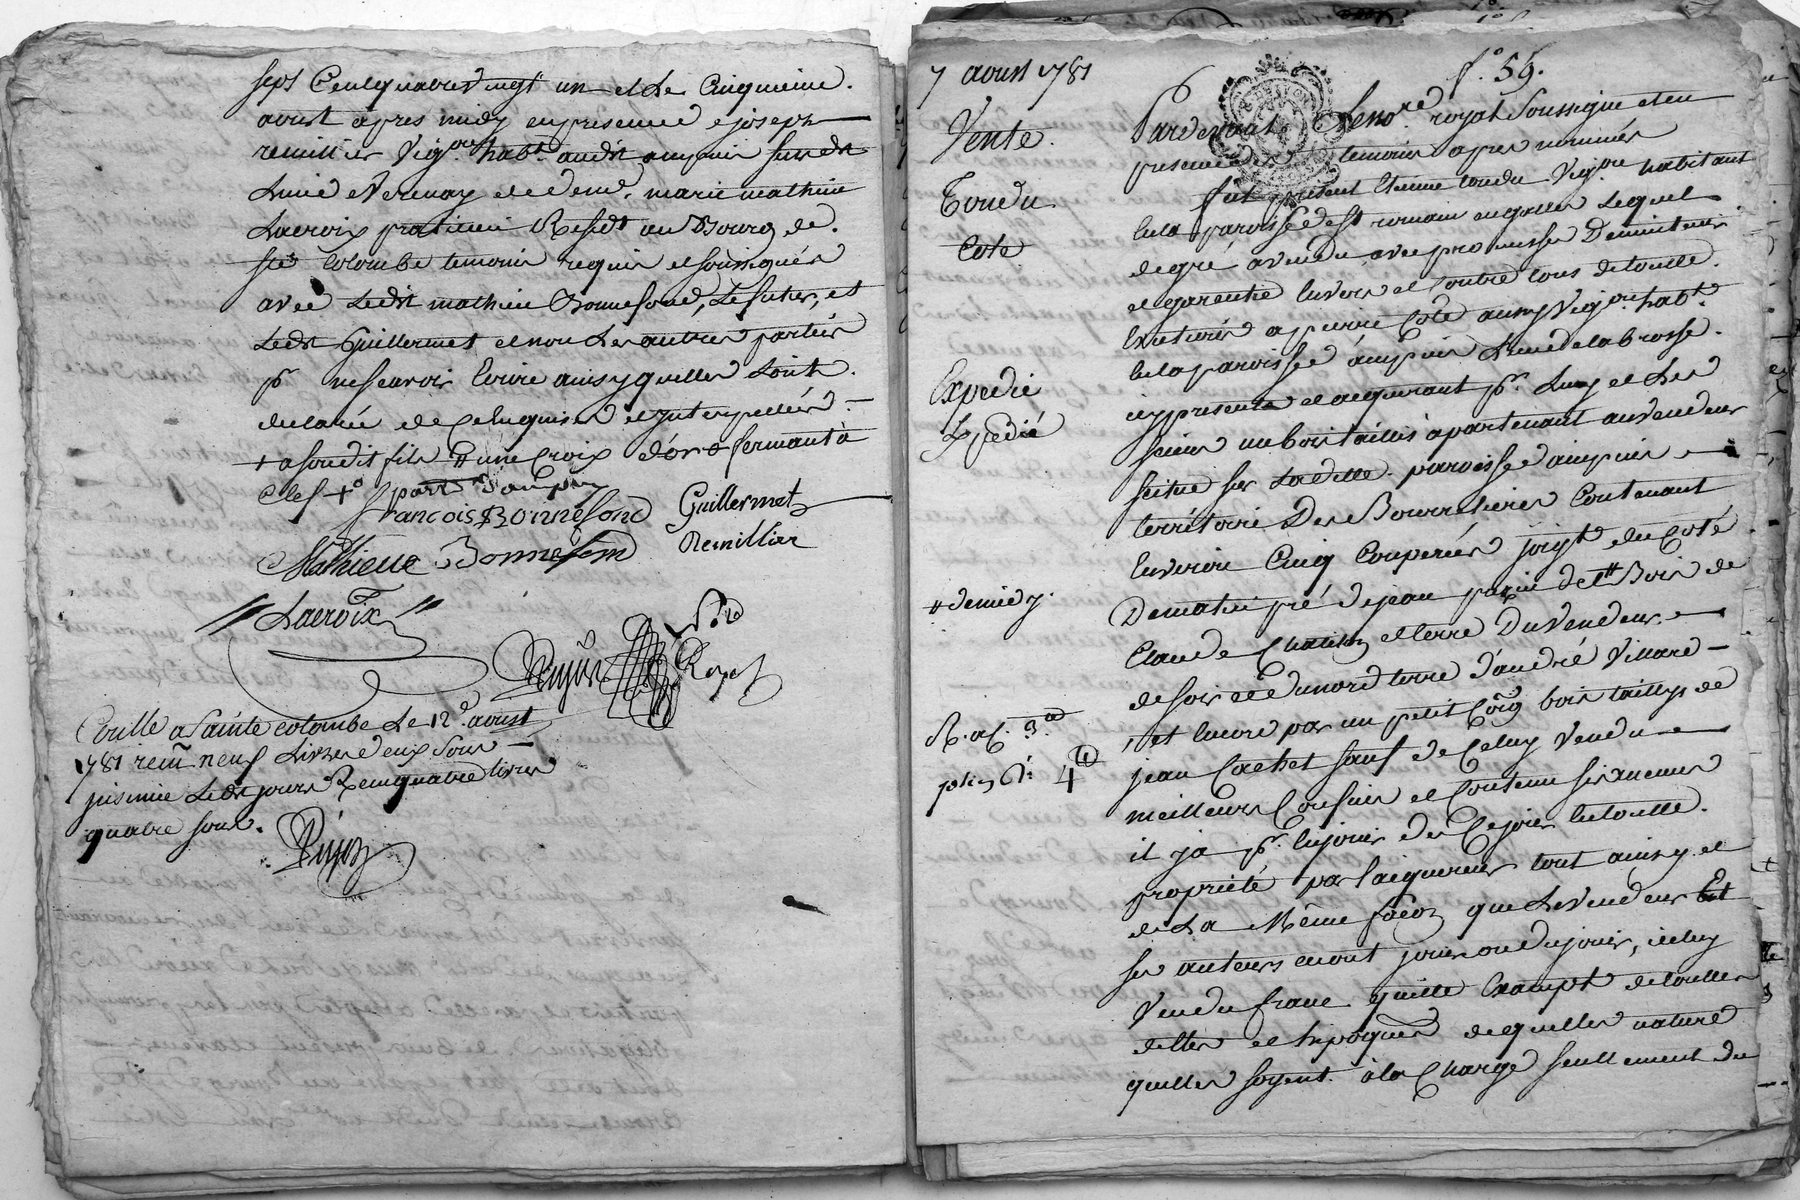 sept Cent quatre vingt un et le Cinquieme
aoust apres midy en presence de joseph
remillier Vig.on hab.t audit ampuis susdit
Lacroix praticien Resid.t au Bourg de
ste Colombe temoins requis et soussignés
avec ledit mathieu Bonnefond, le futur, et
ledit Guillermet et non les autres parties
p.r ne scavoir Ecrire ainsy quelles dont
declaré de Ce enquises et interpellées
+ a son dit fils # une Croix d'or & fermant à
Clef +
françois Bonnefond Guillermet
Mathieue Bonnefond Remillier
Lacroix
Conllé a Sainte colombe Le 12.e aoust
1781 neuf Livres deux Sous
quatre livres
quatre sous.
7 aoust 1781
f.o 59.
Vente
Coudu
Cote
Expedié
Expedié
# demidy.
4
Pardevant Le no.re royal Soussigné et en
presence des temoins apres nommés
fut présent Etienne Coudu Vig.on habitant
en la paroisse de st romain en galles Lequel
de gré a vendu avec promesse De maintenir
et garentie Envers et Contre tous de toutte
Evictions a pierre Cote aussy Vig.on hab.t
en la paroisse d'ampuis Lieu de la brosse
icy present et acquerant p.r Luy et Les
siens un bois taillis apartenant au vendeur
scitué sur La ditte paroisse d'ampuis
territoire Des Bourrelieres Contenant
Environ Cinq Couperées joig.t du Coté
De matin pré de jean # Bois de
Claude Chatillon et terre Du Vendeur
de soir et de nord terre d'andré Villard
, et Encore par un petit Coing bois taillys de
jean Cachet sauf de Celuy Vendu
meilleurs Confins et Contenu si aucuns
il y a p.r En jouir des Ce jour En toutte
propriété par l'acquereur tout ainsy et
de La Même façon que Le Vendeur Et
ses auteurs en ont jouis ou du jouir, icelluy
Vendu franc quitte Exampt de touttes
dettes et hipoques de quelles nature
quelles soyent à la Charge seullement du